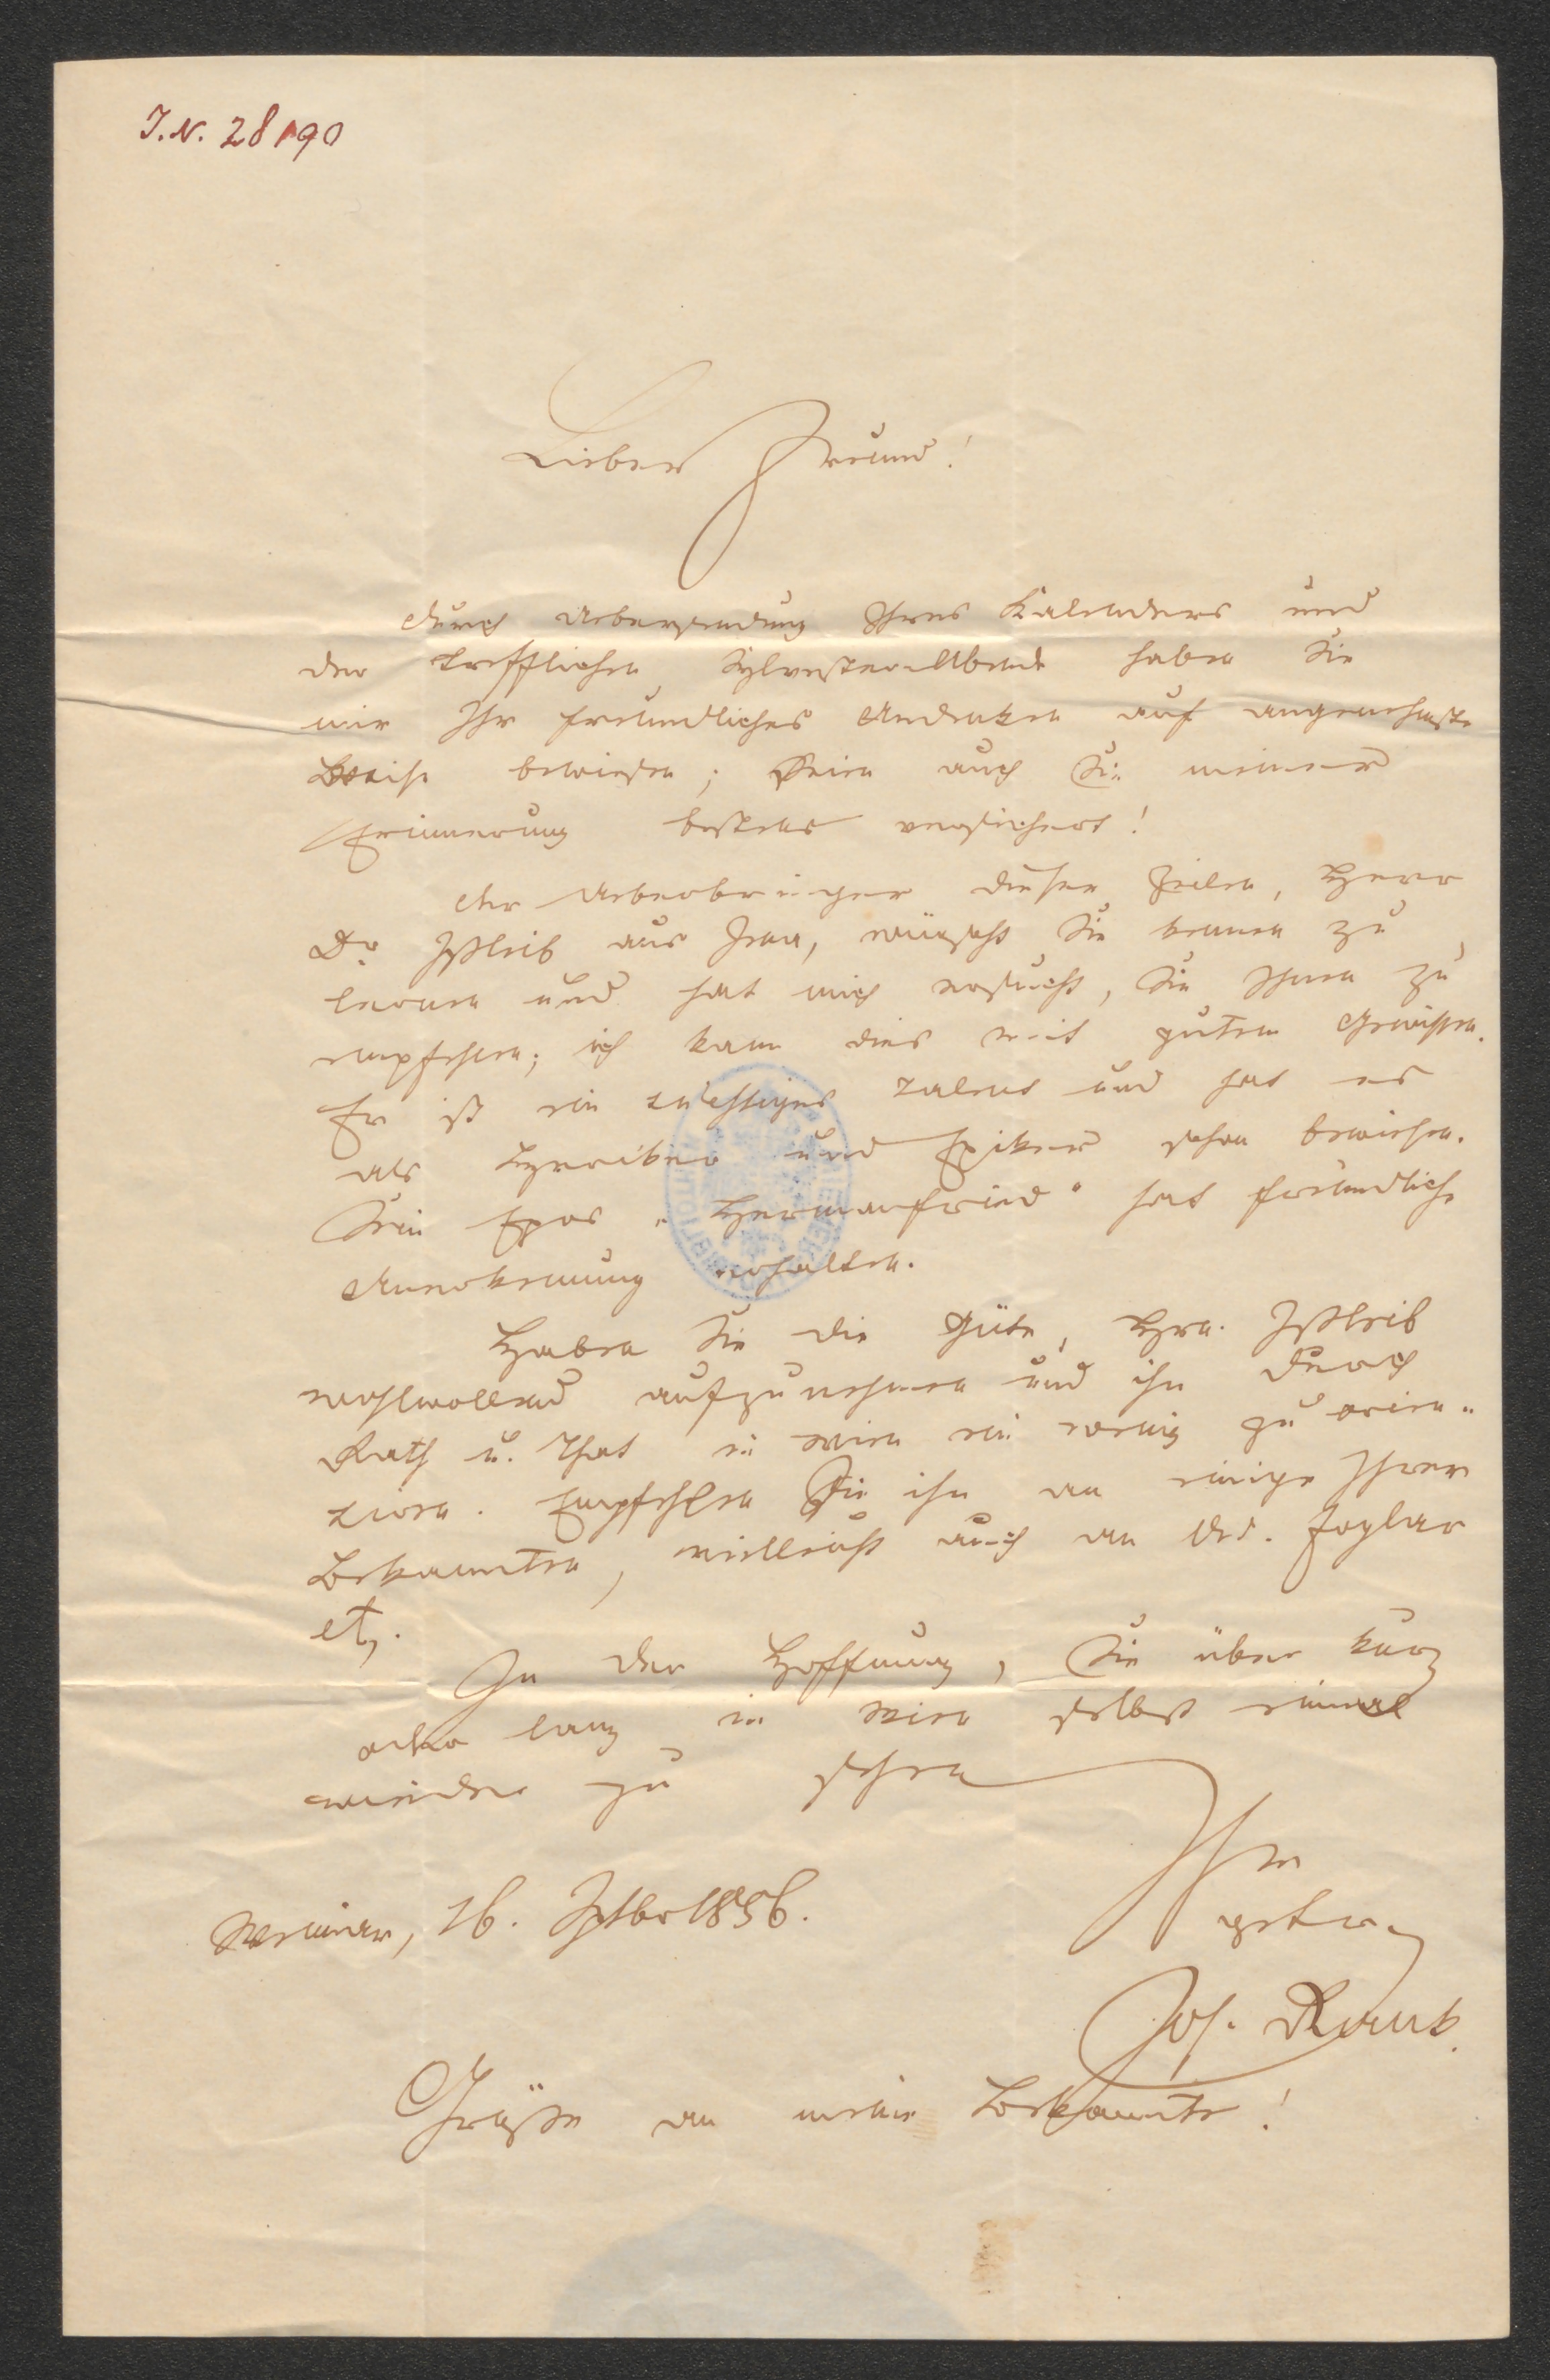 I.N. 28190
Lieber Freund!
Durch Uebersendung Ihres Kalenders und
der trefflichen Sylvester-Abende haben Sie
mir Ihr freundliches Andenken auf angenehmste
Weise bewiesen; Seien auch Sie meiner
Erinnerung bestens versichert!
Der Ueberbringer dieser Zeilen, Herr
Dr Ißleib aus Jena, wünscht Sie kennen zu
lernen und hat mich ersucht, Sie Ihnen zu
empfehlen; ich kann dies mit gutem Gewissen.
Er ist ein tüchtiges Talent und hat es
als Lyriker und Epiker schon bewiesen.
Sein Epos „Hermanfried" hat freundliche
Anerkennung erhalten.
Haben Sie die Güte, Hrn. Ißleib
wohlwollend aufzunehmen und ihn durch
Rath u. That in Wien ein wenig zu orien-
tiren. Empfehlen Sie ihn an einige Ihrer
Bekannten, vielleicht auch an Foglar
etz.
In der Hoffnung, Sie über kurz
oder lang in Wien selbst einmal
wieder zu sehen
Ihr
getr.
Jos. Rank.
Weimar, 16. 1856.
Grüße an meine Bekannte!